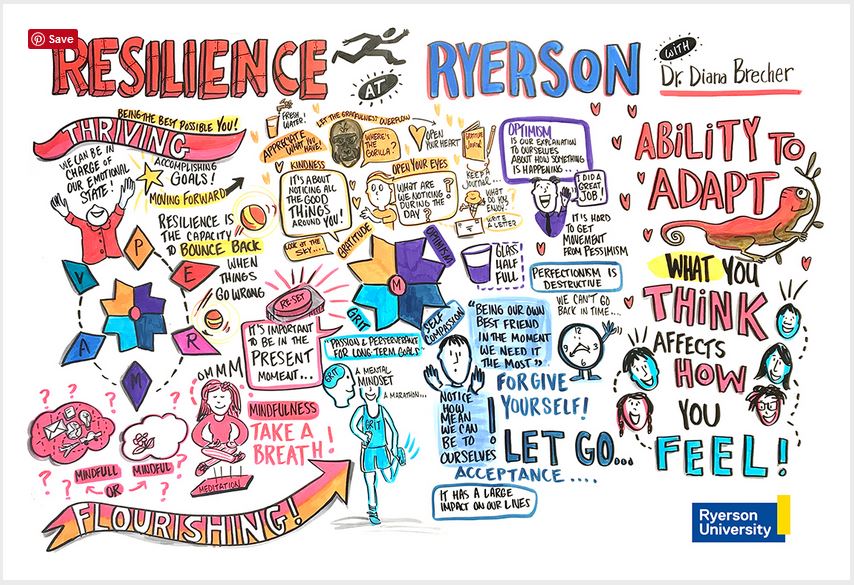 Save
RESILIENCE
AT
RYERSON
WITH
Dr. Diana Brecher
BEING THE BEST POSSIBLE YOU!
THRIVING
WE CAN BE IN
CHARGE OF
OUR EMOTIONAL
STATE!
ACCOMPLISHING
GOALS!
MOVING FORWARD
RESILIENCE IS
THE CAPACITY
TO BOUNCE BACK
WHEN
THINGS
GO WRONG
P
E
R
M
A
V
M
FRESH
WATER.
LET THE GRATEFULNESS OVERFLOW
APPRECIATE
WHAT YOU
HAVE!
WHERE'S
THE
GORILLA?
OPEN
YOUR HEART
KINDNESS
IT'S ABOUT
NOTICING ALL
THE GOOD
THINGS
AROUND YOU!
LOOK AT THE
SKY....
OPEN YOUR EYES
WHAT ARE
WE NOTICING
DURING THE
DAY?
GRATITUDE
JOURNAL
KEEP A
JOURNAL...
WHAT
DO YOU
ENJOY?
WRITE
A LETTER
OPTIMISM
IS OUR EXPLANATION
TO OURSELVES
ABOUT HOW SOMETHING
IS HAPPENING..
I DID A
GREAT
JOB!
IT'S HARD
TO GET
MOVEMENT
FROM PESSIMISM
GLASS
HALF
FULL
PERFECTIONISM IS
DESTRUCTIVE
GRATITUDE
OPTIMISM
GRIT
SELF
COMPASSION
M
RE-SET
IT'S IMPORTANT
TO BE IN THE
PRESENT
MOMENT...
"PASSION & PERSEVERANCE
FOR LONG-TERM GOALS"
GRIT
A MENTAL
MINDSET
A MARATHON...
GRIT
"BEING OUR OWN
BEST FRIEND
IN THE MOMENT
WE NEED IT
THE MOST"
WE CAN'T GO
BACK IN TIME...
FORGIVE
YOURSELF!
NOTICE
HOW
MEAN
WE CAN
BE TO
OURSELVES
!
LET GO...
ACCEPTANCE ....
IT HAS A LARGE
IMPACT ON OUR LIVES
OHMMM
MINDFULNESS
TAKE A
BREATH!
MEDITATION
? ? ? ? ? ?
MINDFULL
OR
MINDFUL
FLOURISHING!
ABILITY TO
ADAPT
WHAT YOU
THINK
AFFECTS
HOW
YOU
FEEL!
Ryerson
University